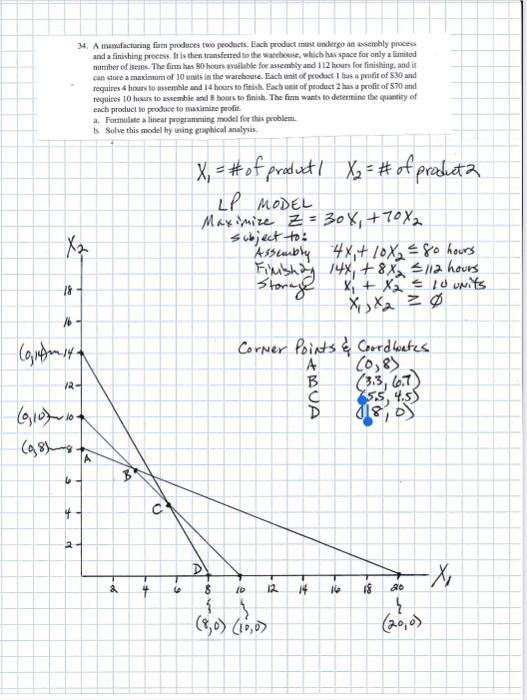 34. A manufacturing firm produces two products. Each product must undergo an assembly process
and a finishing process. It is then transferred to the warehouse, which has space for only a limited
number of items. The firm has 80 hours available for assembly and 112 hours for finishing, and it
can store a maximum of 10 units in the warehouse. Each unit of product 1 has a profit of $30 and
requires 4 hours to assemble and 14 hours to finish. Each unit of product 2 has a profit of $70 and
requires 10 hours to assemble and 8 hours to finish. The firm wants to determine the quantity of
each product to produce to maximize profit.
a. Formulate a linear programming model for this problem.
b. Solve this model by using graphical analysis.
X₁ = # of product 1 X₂ = # of product 2
LP MODEL
Maximize Z = 30X₁ + 70X₂
subject to:
Assembly 4X₁ + 10X₂ ≤ 80 hours
Finishing 14X₁ + 8X₂ ≤ 112 hours
Storage X₁ + X₂ ≤ 10 units
X₁, X₂ ≥ 0
Corner Points & Coordinates
A (0,8)
B (3.3, 6.7)
C (5.5, 4.5)
D (8, 0)
X₂
18
16
(0,14) 14
12
(0,10) 10
(0,8) 8
A
6
B
4
C
2
D
X₁
2 4 6 8 10 12 14 16 18 20
(8,0) (10,0) (20,0)